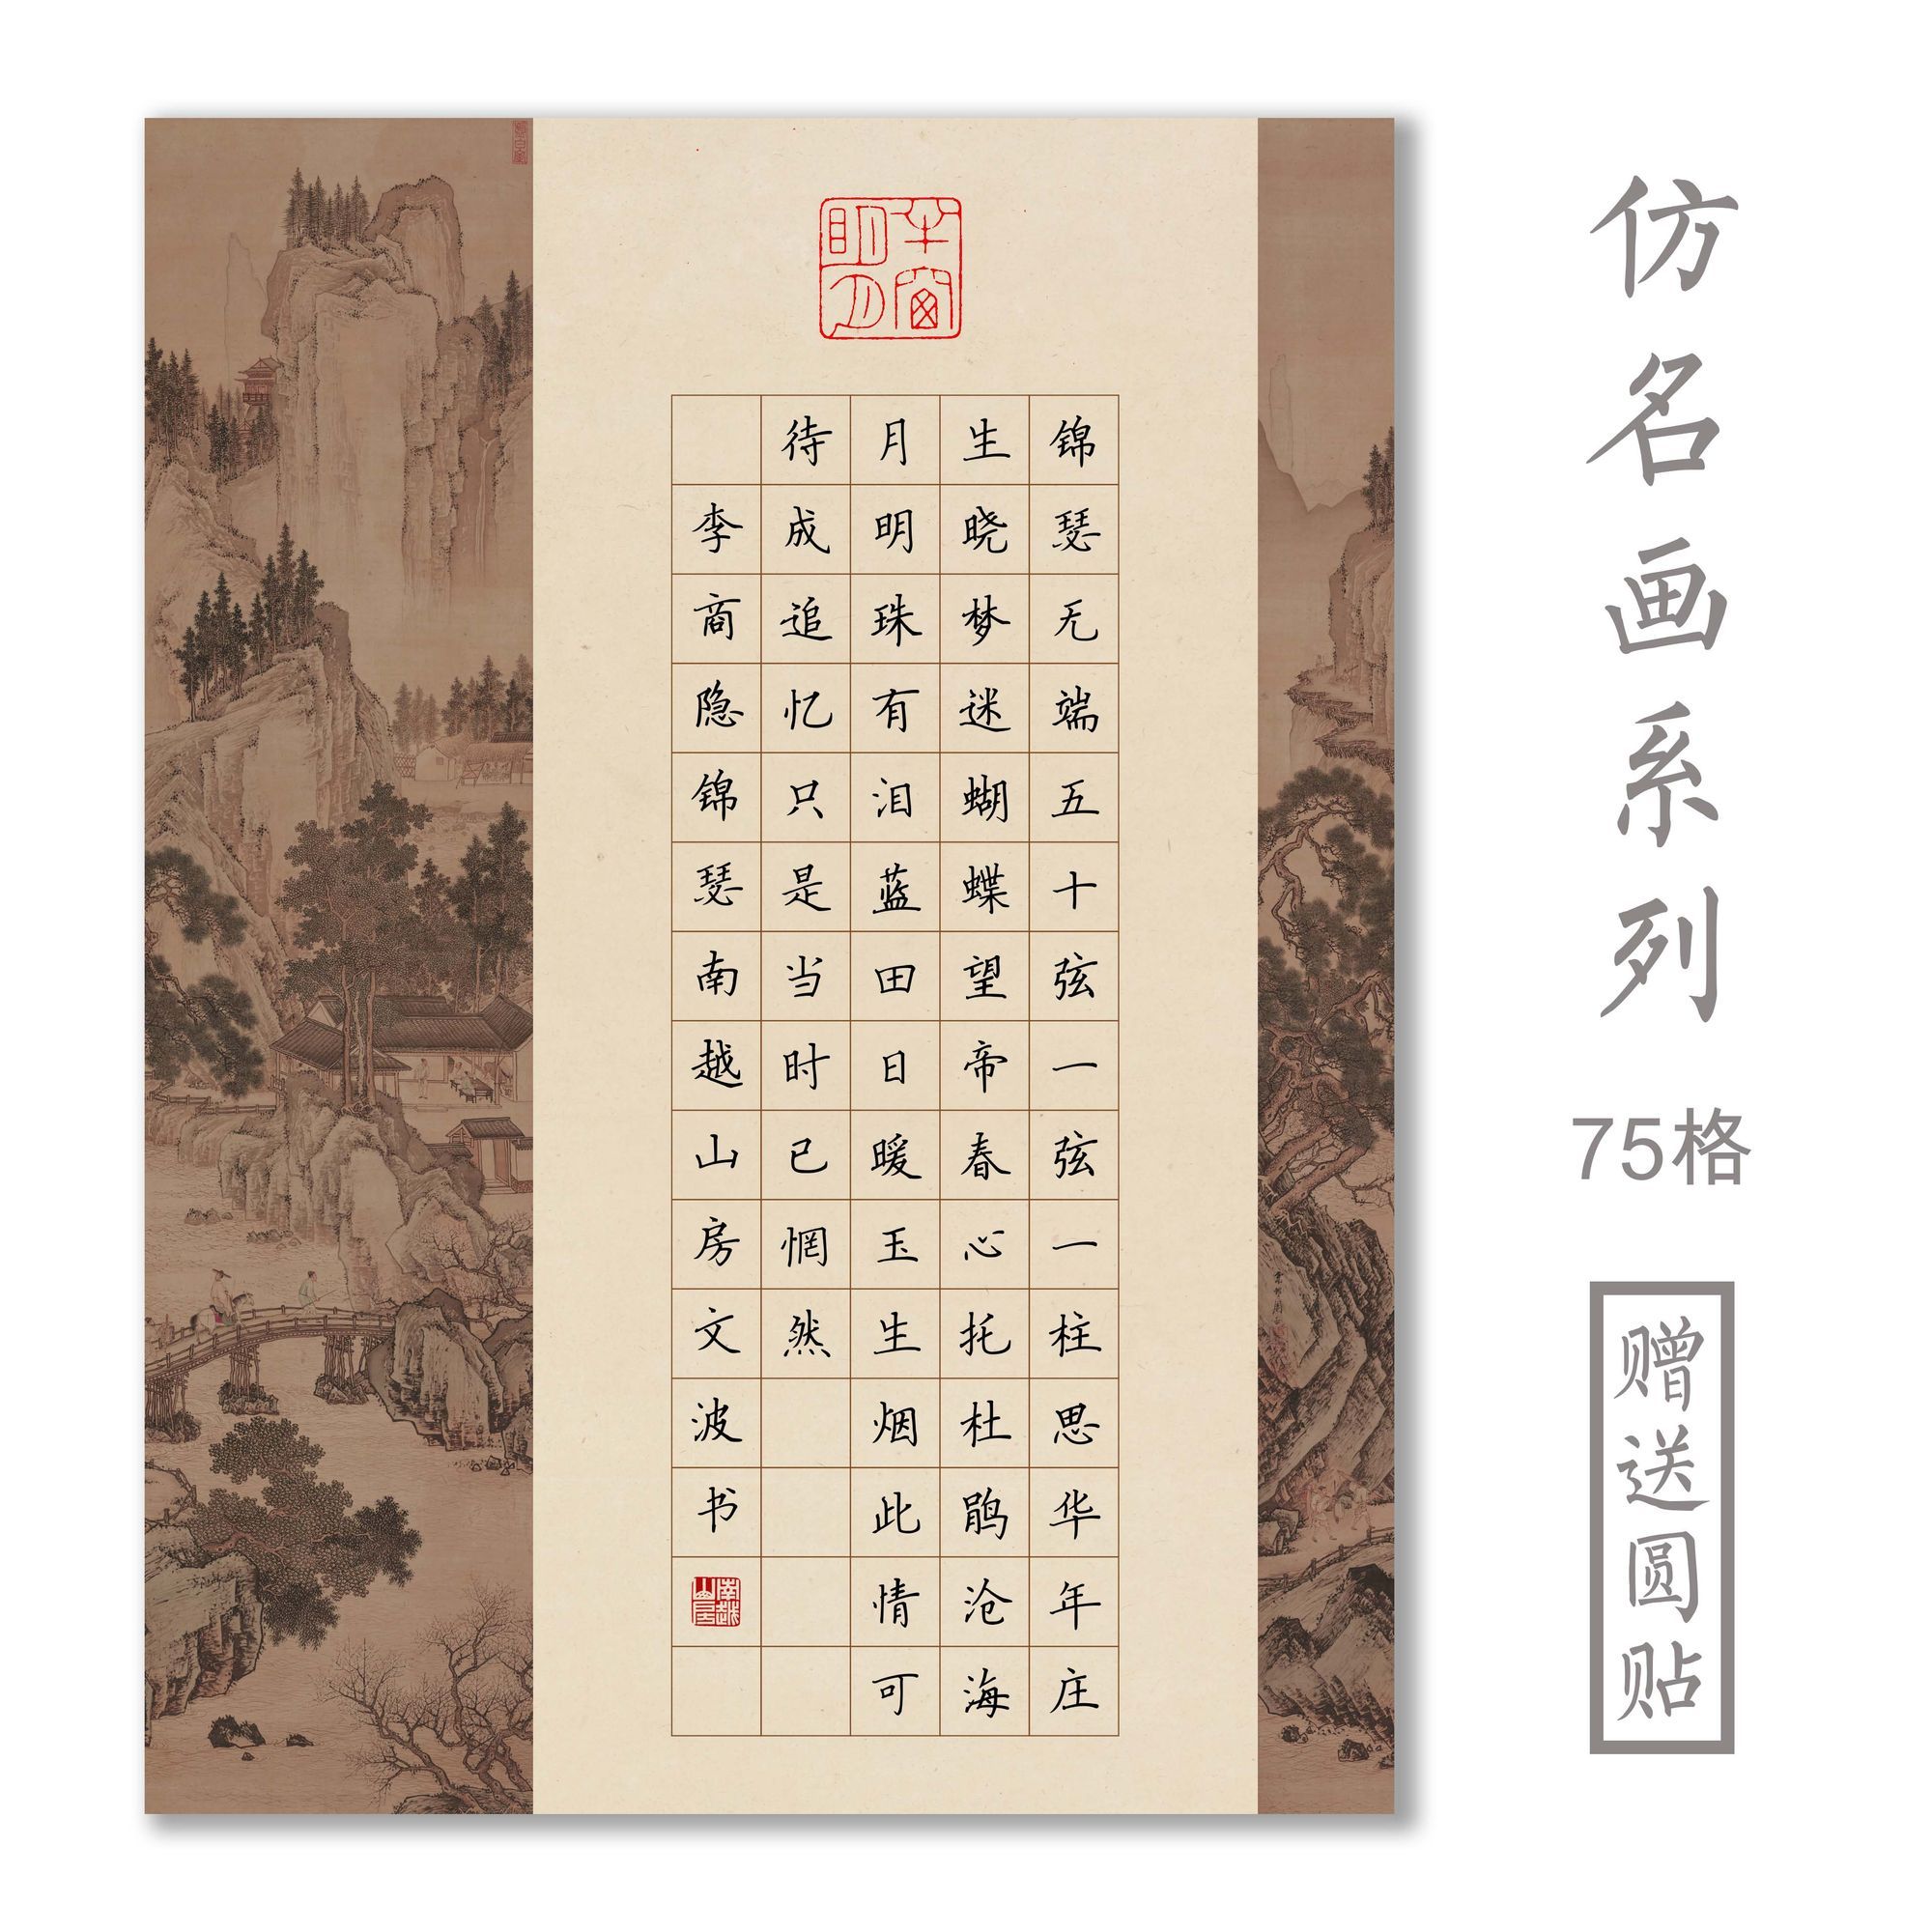 锦瑟无端五十弦一弦一柱思华年庄
生晓梦迷蝴蝶望帝春心托杜鹃沧海
月明珠有泪蓝田日暖玉生烟此情可
待成追忆只是当时已惘然
李商隐锦瑟南越山房文波书
南越山房
仿名画系列
75格
赠送圆贴